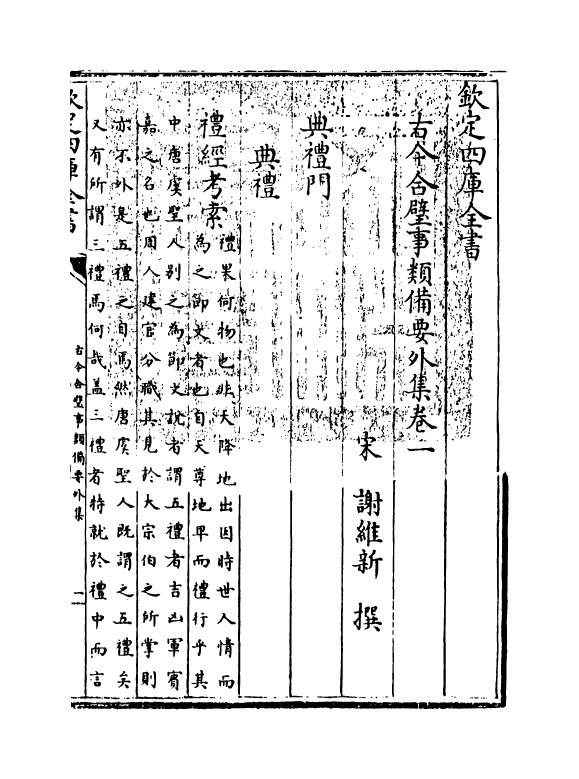 欽定四庫全書
古今合璧事類備要外集卷一
宋　謝維新　撰
典禮門
典禮
禮經考索
禮果何物也非天降地出因時世人情而
為之節文者也自天尊地卑而禮行乎其
中唐虞聖人别之為節文說者謂五禮者吉凶軍賓
嘉之名也周人建官分職其見於大宗伯之所掌則
亦不外是五禮之目焉然唐虞聖人既謂之五禮矣
又有所謂三禮焉何哉盖三禮者特就於禮中而言
欽定四庫全書
古今合璧事類備要外集
一